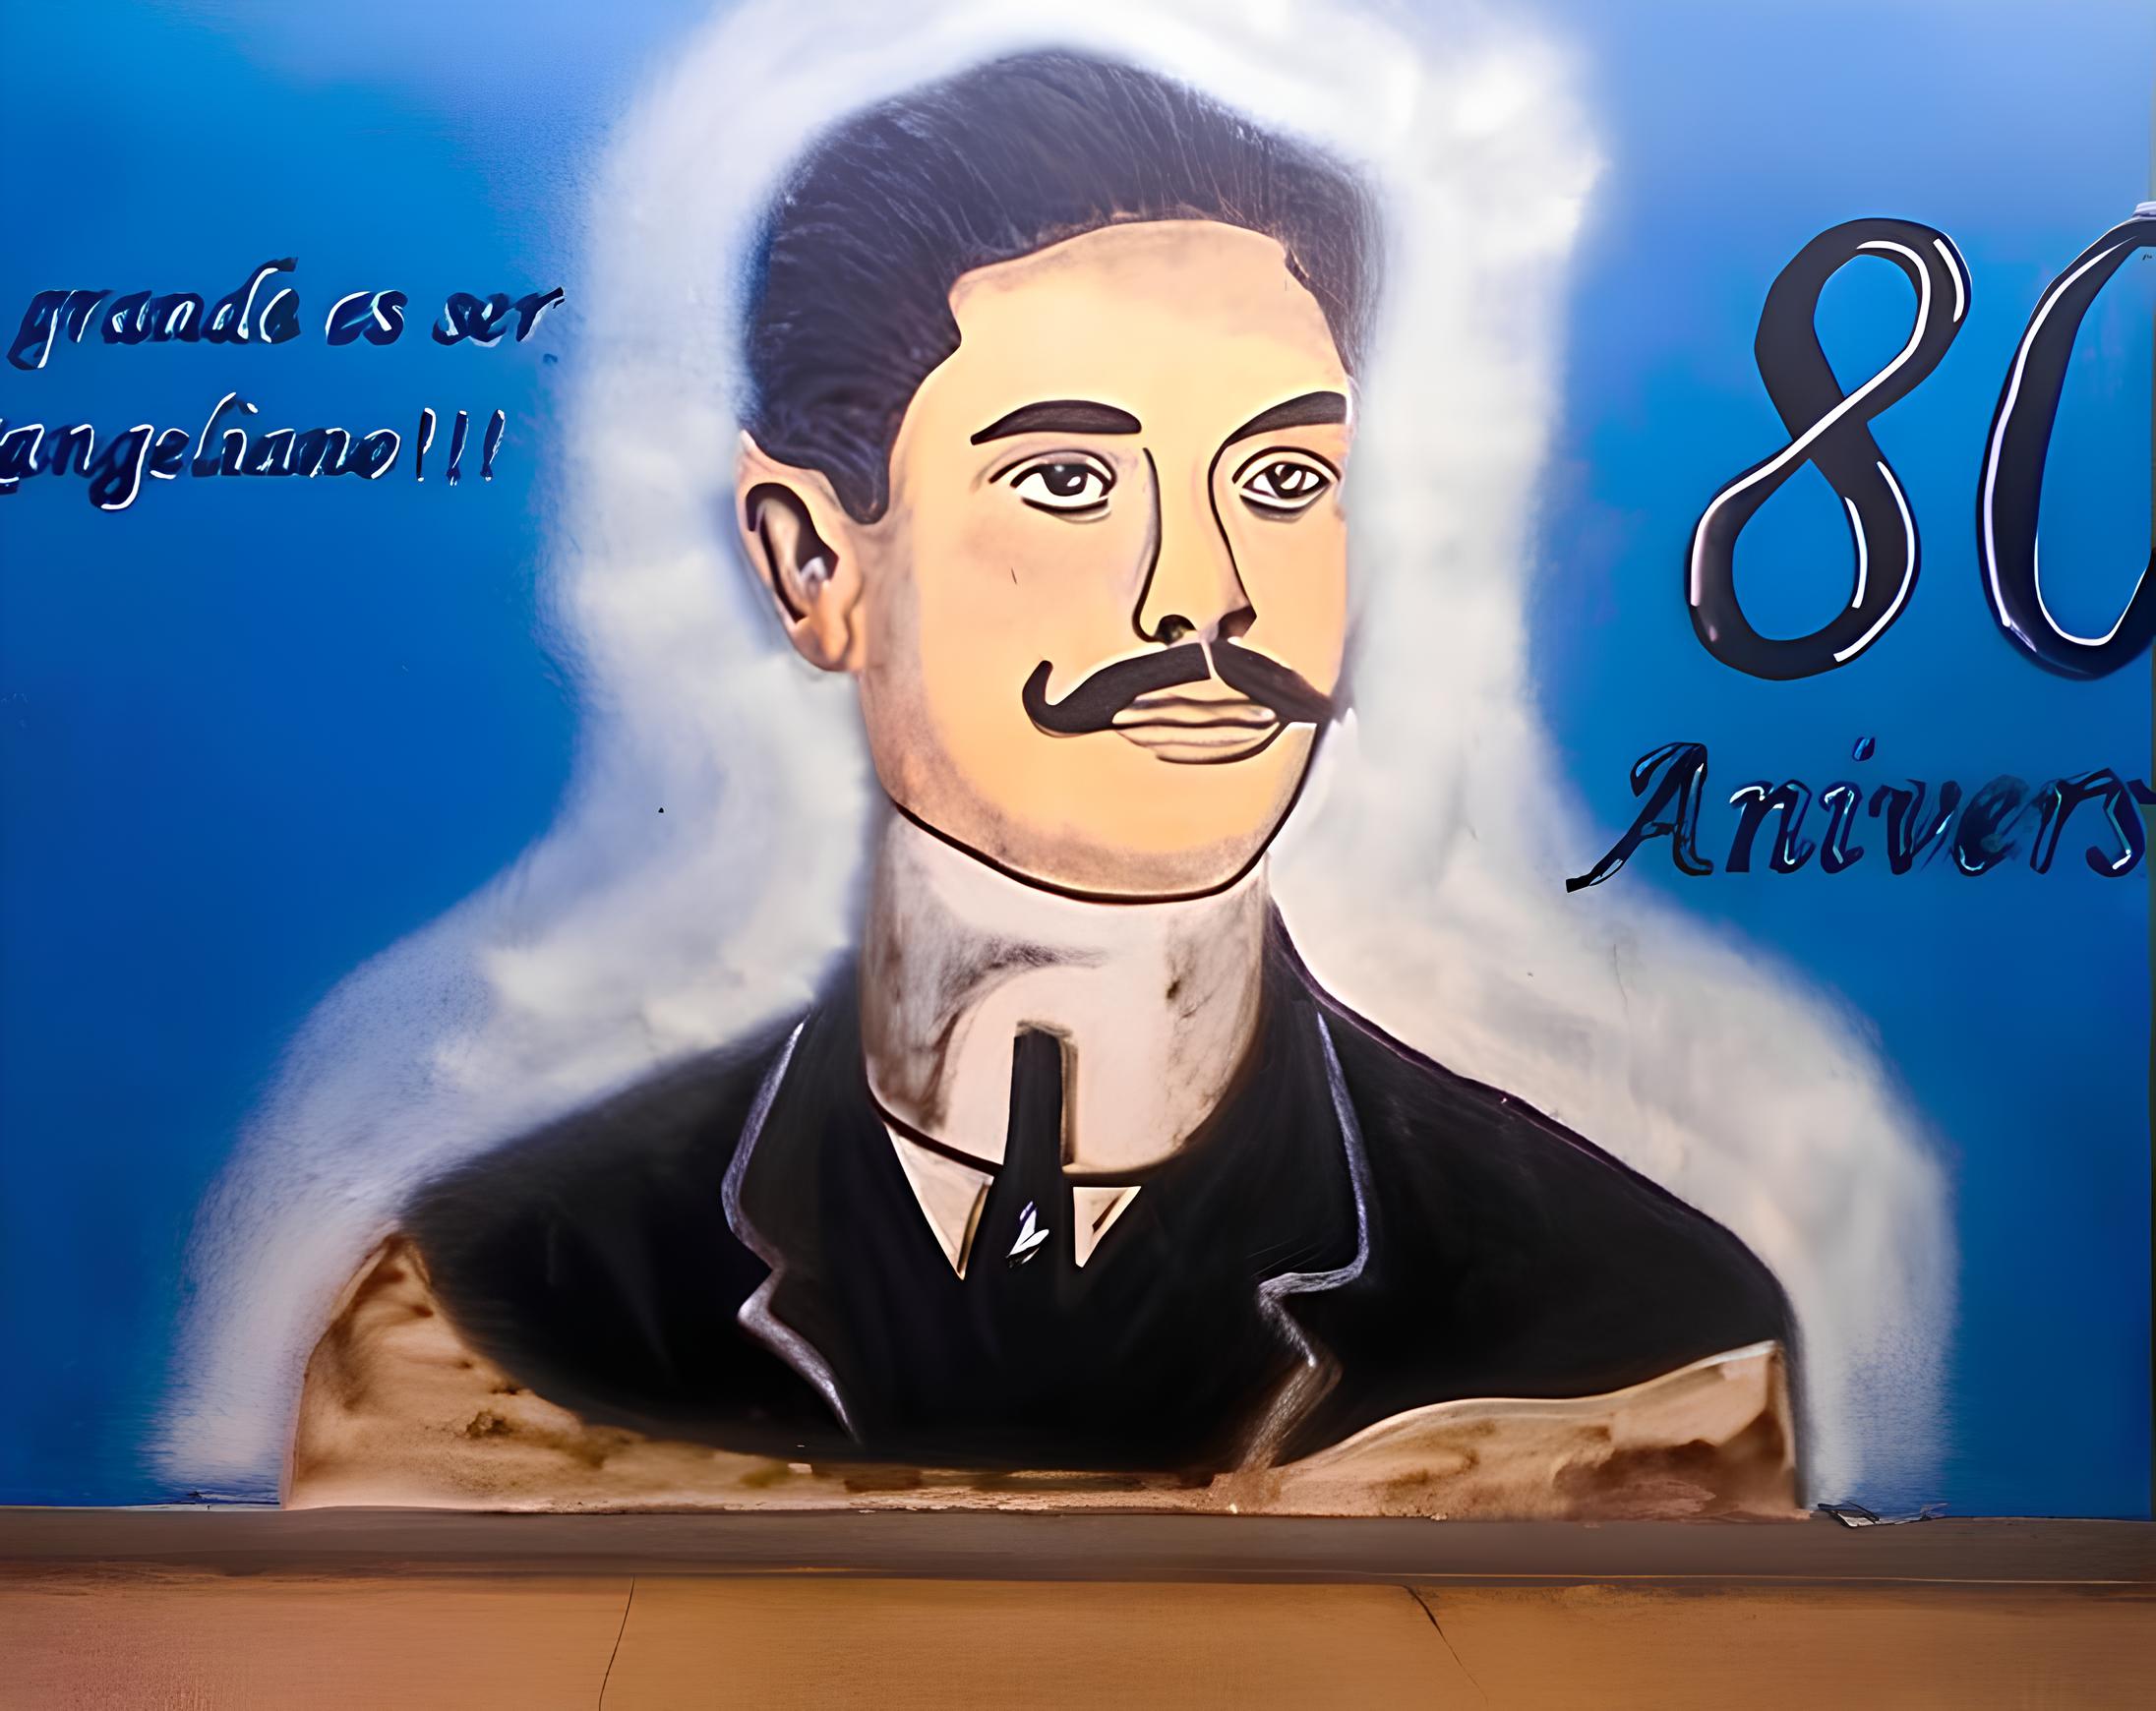 grande es ser
angeliano!!!
80
Anivers